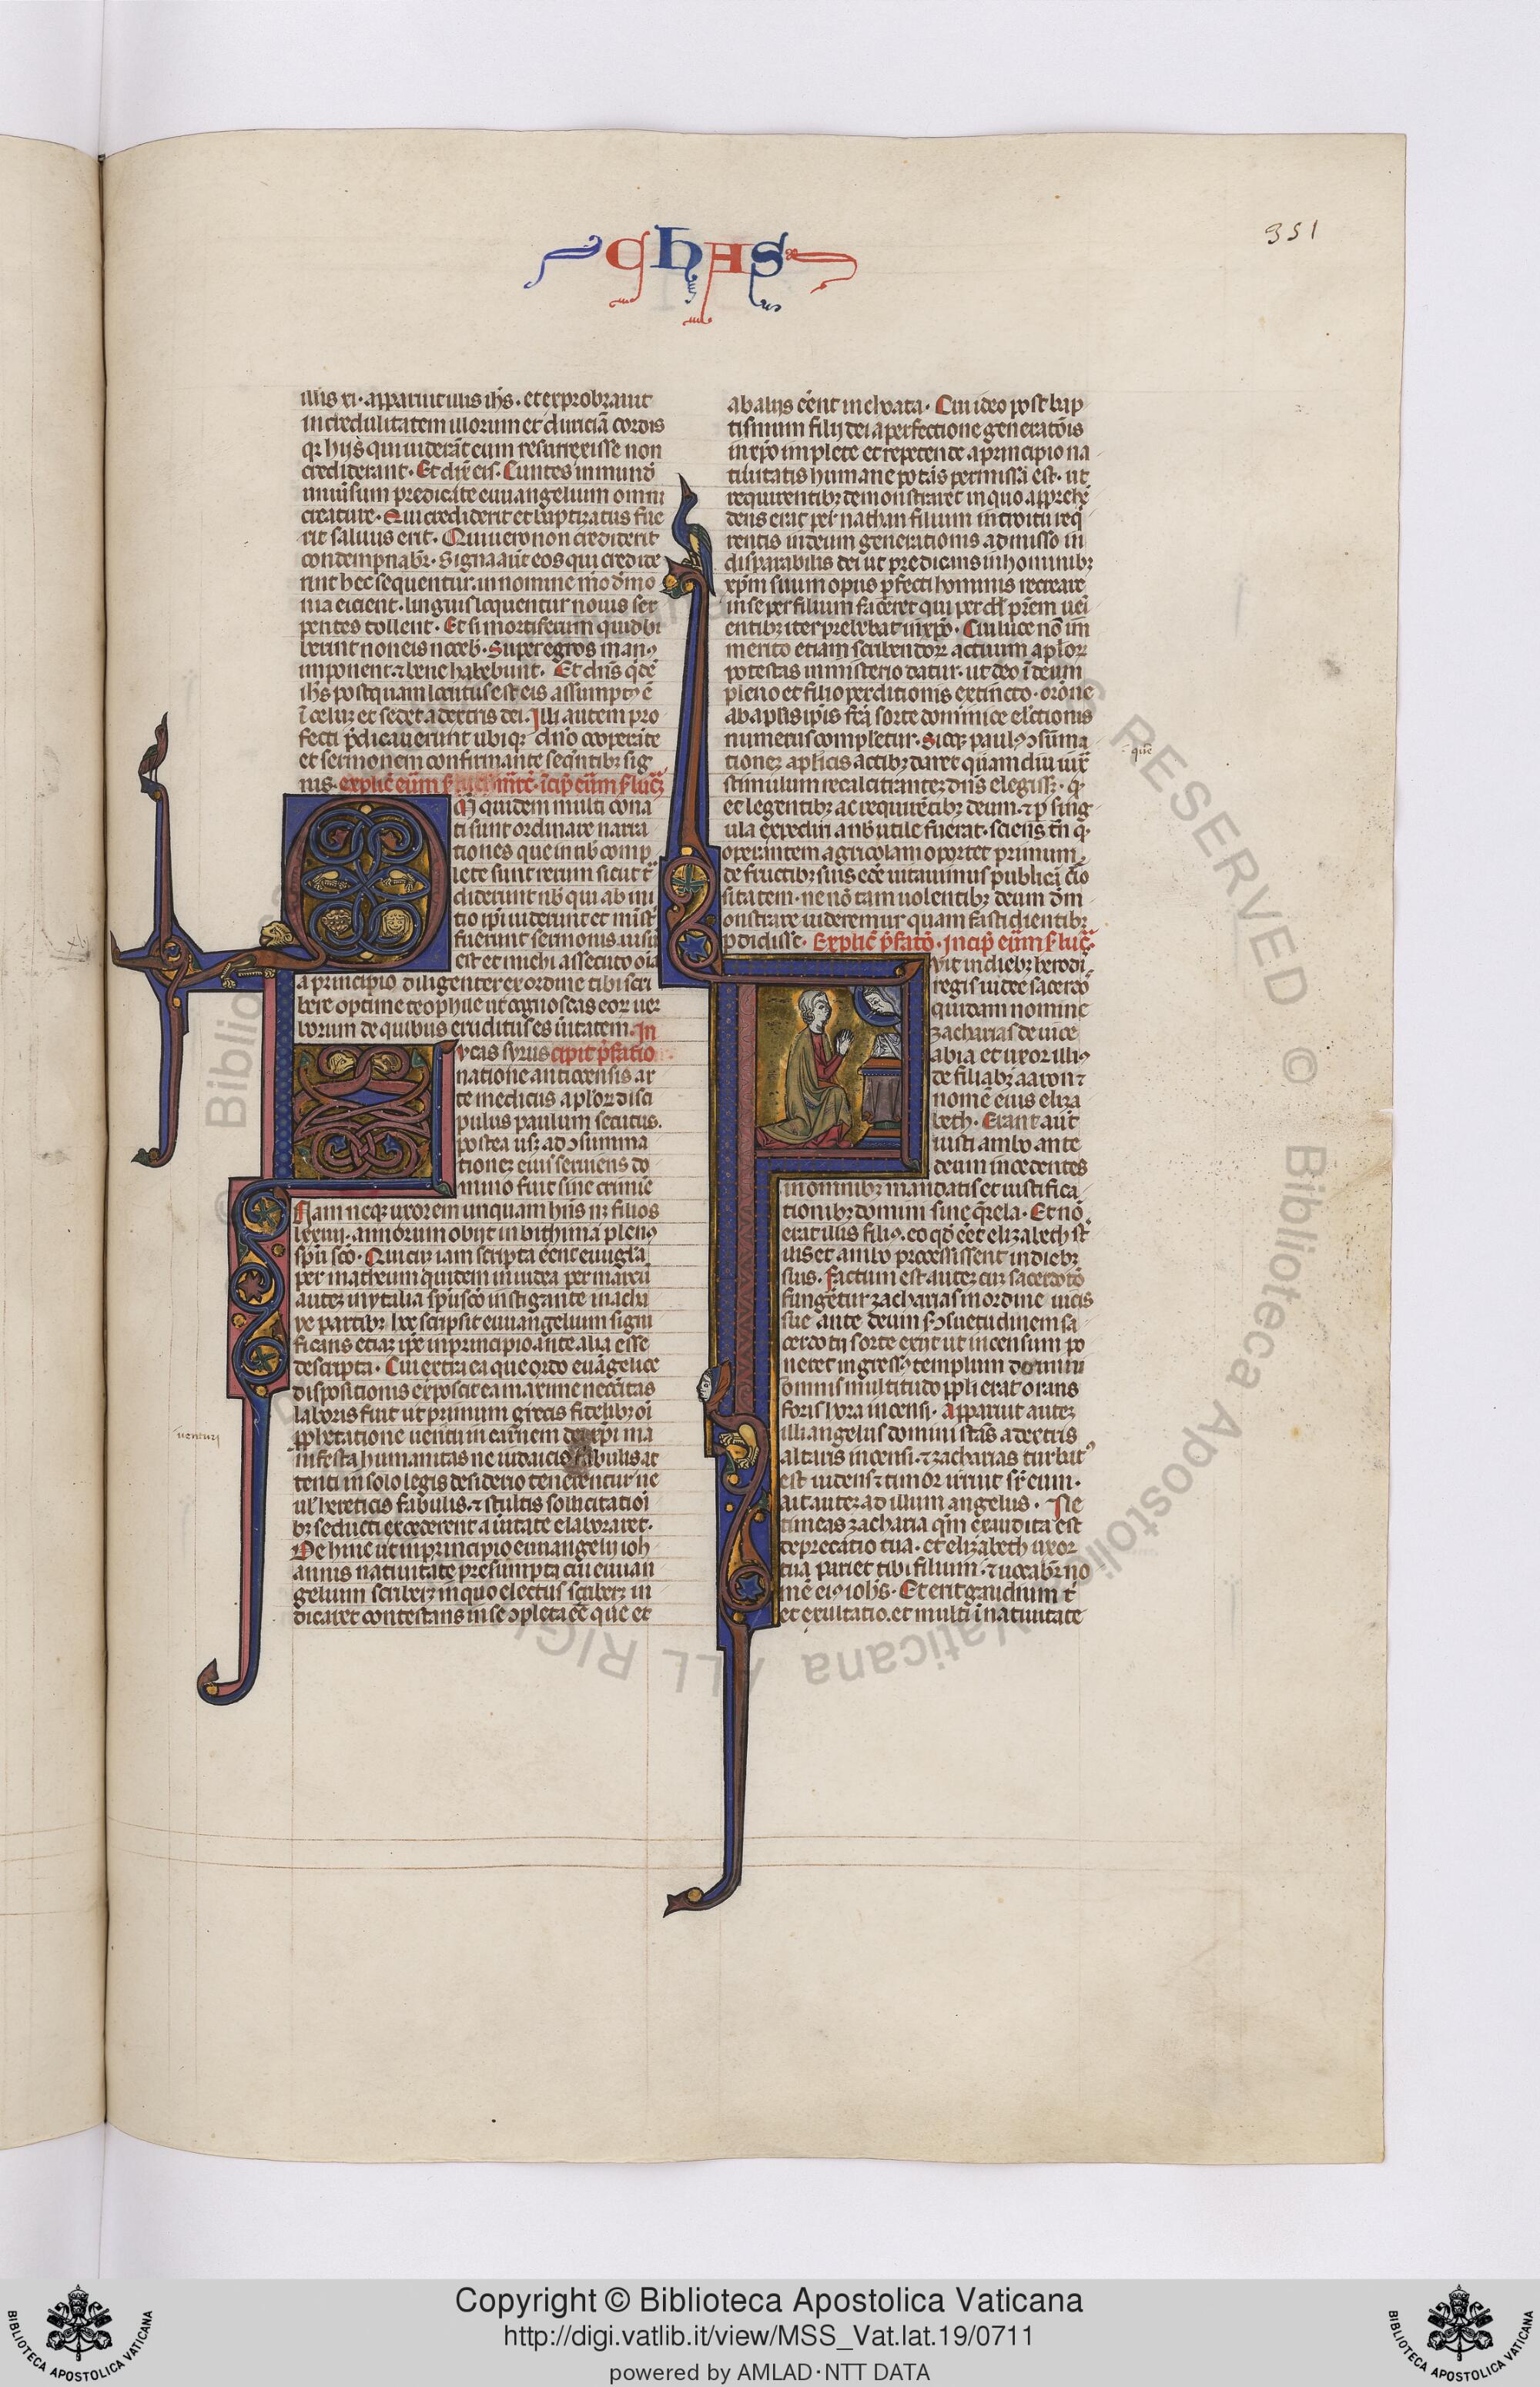 CHAS
351
illis xi. apparuit illis ih̅s. et exprobrauit
incredulitatem illorum et duriciā cordis
qr hijs qui uiderāt eum resurrexisse non
crediderant. Et dix̅ eis. Euntes in mund̅
uniuersum predicate euuangelium omni
creature. Qui crediderit et baptizatus fue
rit saluus erit. Qui uero non crediderit
condempnabr̅. Signa aūt eos qui credide
rint hec sequentur. in nomine meo demo
nia eicient. linguis loquentur nouis ser
pentes tollent. Et si mortiferum quid bi
berint non eis noceb̅. Super egros manꝰ
imponent. ⁊ bene habebunt. Et dn̅s qͥdē
ih̅s postquam locutus est eis assumptꝰ ē
ī celuꝫ et sedet a dextris dei. Illi autem pro
fecti p̅dicauerunt ubiqꝫ dn̅o cooperāte
et sermonem confirmante seqn̅tibꝫ sig
nis.
Qm̅ quidem multi cona
ti sunt ordinare narra
tiones que in nob̅ comp
lete sunt rerum sicut t̅
diderunt nob̅ qui ab ini
tio ip̅i uiderunt et minist̅
fuerunt sermonis. uisū
est et michi assecuto oīa
a principio diligenter ex ordine tibi scri
bere optime teophile ut cognoscas eoꝝ uer
borum de quibus eruditus es ūitatem. In
ucas syrus cipit p̅fatio
natione anticensis ar
te medicus aploꝝ disci
pulus paulum secutus.
postea usqꝫ ad ꝯsumma
tioneꝫ eius seruiens do
mino fuit sine crimīe
Nam neqꝫ uxorem unquam hn̅s nꝫ filios
lxxiiij. annorum obijt in bithinia plenꝰ
spū sc̅o. Qui cū iam scripta eēnt euuglīa
per matheum quidem in iudea per marcū
auteꝫ in ytalia spū sc̅o instigante in achi
ye partibꝫ hoc scripsit euuangelium signi
ficans etiaꝫ ip̅e in principio ante alia esse
descripta. Cui extra ea que ordo euāgelice
dispositionis exposcit ea maxime neccitas
laboris fuit ut primum grecis fidelibꝫ oī
pphetatione uenturi in carnem dei xp̅i ma
nifesta humanitas ne iudaicis fabulis at
tenti in solo legis desiderio tenerentur ne
uel hereticis fabulis. ⁊ stultis sollicitatiōi
bꝫ seducti excederent a ūitate elaboraret.
Dehinc ut in principio euuangelij ioh
annis natiuitate presumpta cui euuan
gelium scriberꝫ in quo electus scriberꝫ in
dicaret contestans in se ꝯpleta eē que eēt
uenturi
ab alijs eēnt inchoata. Cui ideo post bap
tismum filij dei a perfectione generatōis
in xp̅o implete et repetende a principio na
tiuitatis humane potās permissa est. ut
requirentibꝫ demonstraret in quo apprehē
dens erat per nathan filium introitu reqͥ
rentis in deum generationis admisso in
disparabilis dei ut predicans in hominibꝫ
xp̅m suum opus p̅fecti hominis redeare
in se per filium faceret qui per dd̅ pr̅em ueī
entibꝫ iter prebebat in xp̅o. Cui luce nō im
merito etiam scribendoꝝ actuum aploꝝ
potestas in ministerio datur. ut deo ī deum
pleno et filio perditionis extincto. orōne
ab aplīs ip̅is fca̅ sorte dominice electionis
numerus compleretur. Sicqꝫ paulꝰ ꝯsūma
tioneꝫ aplicis actibꝫ daret quam diu ꝯtͣ
que
stimulum recalcitranteꝫ dn̅s elegissꝫ. qͩ
et legentibꝫ ac requirētibꝫ deum. ⁊ p̅ sing
ula expediri a nob̅ utile fuerat. sciens tn̅ qͩ.
operantem agricolam oportet primum
de fructibꝫ suis edē uitauimus publicā c̅io
sitatem. ne nō tam uolentibꝫ deum dem
onstrare uideremur quam fastidientibꝫ
p̅didisse. Explic̅ p̅fatō. Incip̅ eūm s̅ luc̅.
Fuit in diebꝫ herodi
regis iudee sacerdo
quidam nomine
zacharias de uice
abia et uxor illiꝰ
de filiabꝫ aaron ⁊
nomē eius eliza
beth. Erant aut̅
iusti ambo ante
deum incedentes
in omnibꝫ mandatis et iustifica
tionibꝫ domini sine qͥrela. Et nō
erat illis filiꝰ. eo qd̅ eēt elizabeth st̅
ilis et ambo processissent in diebꝫ
suis. Factum est auteꝫ cū sacerdotō
fungeretur zacharias in ordine uicis
sue ante deum s̅ ꝯsuetudinem sa
cerdotij sorte exijt ut incensum po
neret ingressꝰ templum domini
omnis multitudo ppli erat orans
foris hora incensi. Apparuit auteꝫ
illi angelus domini stās a dextris
altaris incensi. ⁊ zacharias turbatꝰ
est uidens ⁊ timor irruit sr̅ eum.
ait auteꝫ ad illum angelus. Ne
timeas zacharia qm̅ exaudita est
deprecatio tua. et elizabeth uxor
tua pariet tibi filium. ⁊ uocabis no
mē eiꝰ ioh̅s. Et erit gaudium t̅
et exultatio. et multi ī natiuitate
© Biblioteca Apostolica Vaticana ALL RIGHTS RESERVED
Copyright © Biblioteca Apostolica Vaticana
http://digi.vatlib.it/view/MSS_Vat.lat.19/0711
powered by AMLAD·NTT DATA
BIBLIOTECA APOSTOLICA VATICANA
BIBLIOTECA APOSTOLICA VATICANA